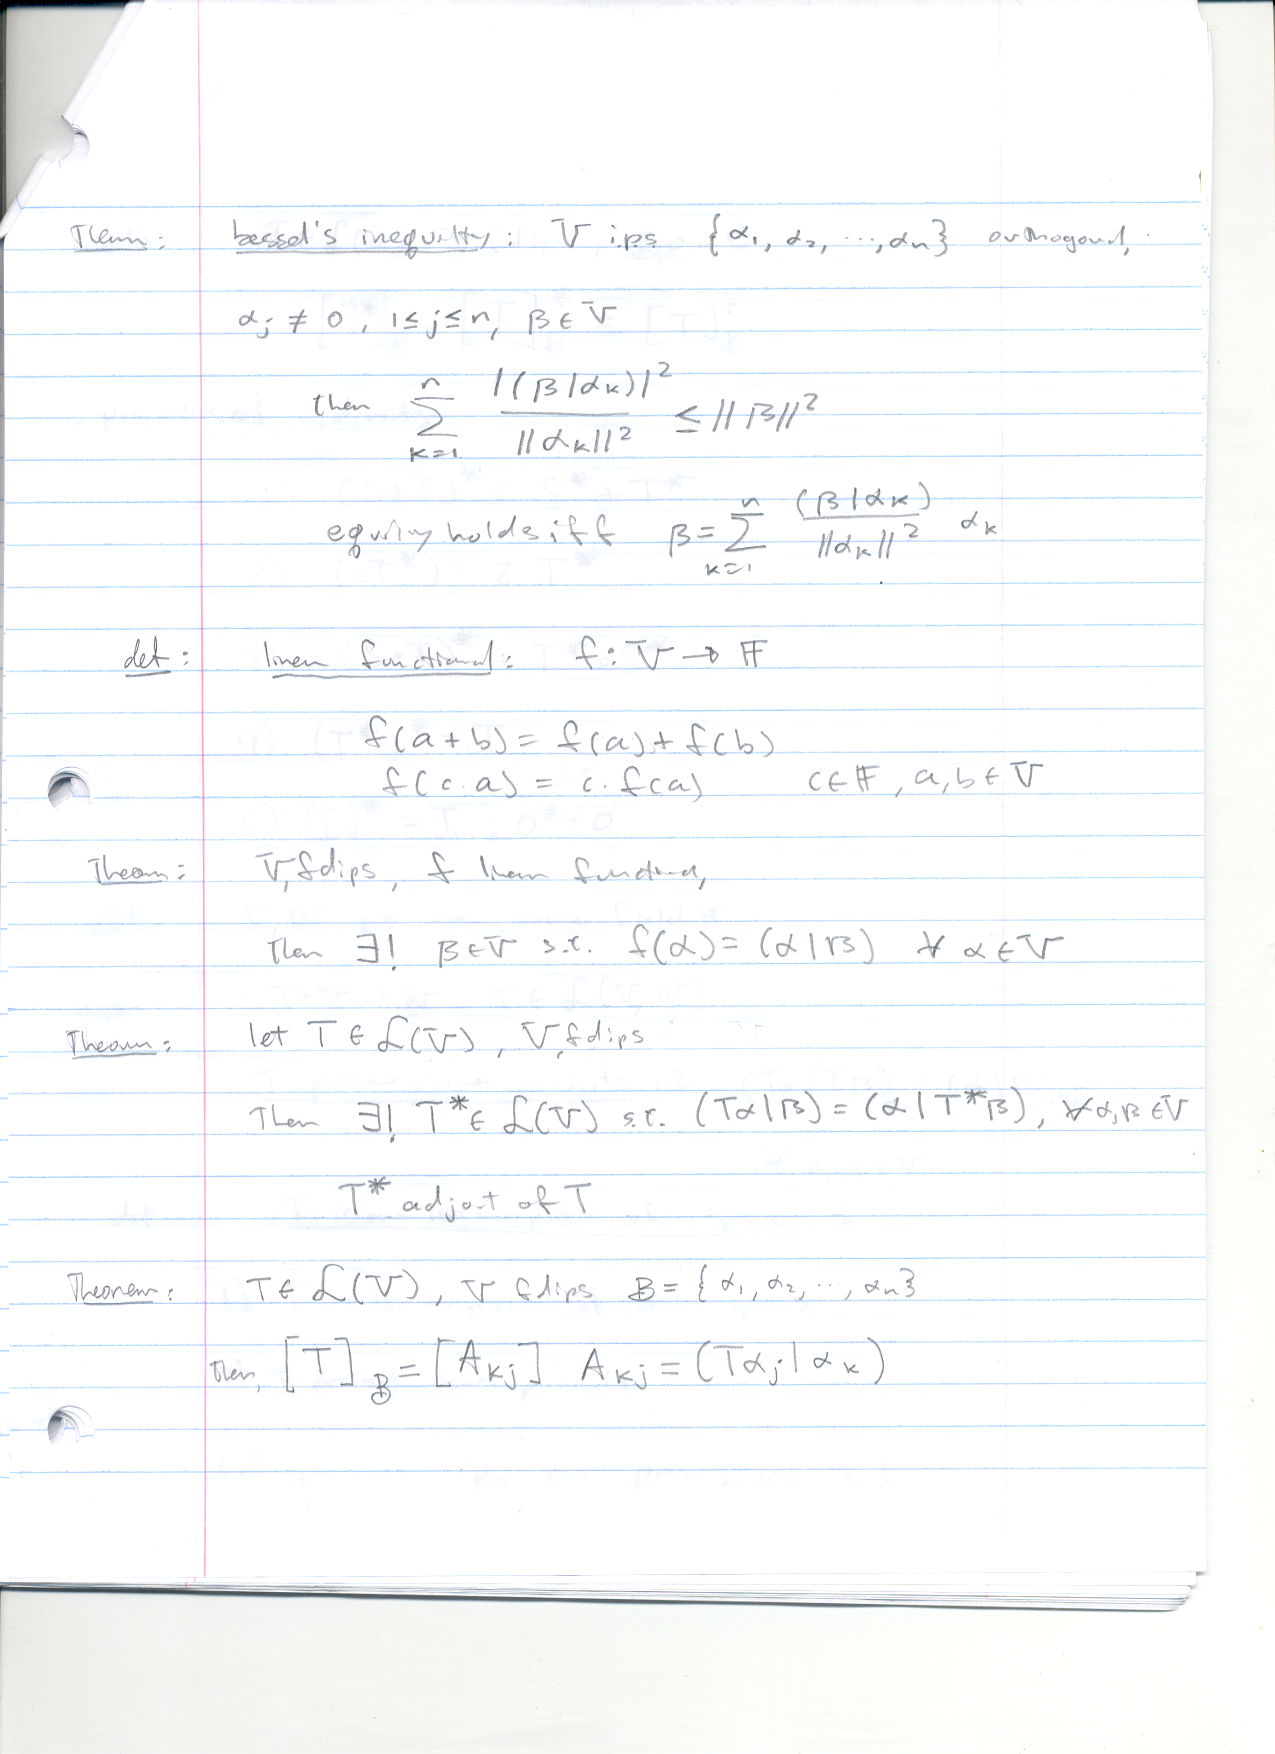 Theorem: bessel's inequality: V ips {α₁, α₂, ..., αₙ} orthogonal,
αⱼ ≠ 0, 1≤j≤n, β∈V
then ∑_{k=1}^{n} |(β|αₖ)|² / ||αₖ||² ≤ ||β||²
equality holds iff β = ∑_{k=1}^{n} (β|αₖ) / ||αₖ||² αₖ
def: linear functional: f: V → 𝔽
f(a+b) = f(a) + f(b)
f(c·a) = c·f(a) c∈𝔽, a,b∈V
Theorem: V, fdips, f linear functional,
Then ∃! β∈V s.t. f(α) = (α|β) ∀ α∈V
Theorem: let T∈ℒ(V), V, fdips
Then ∃! T*∈ℒ(V) s.t. (Tα|β) = (α|T*β), ∀α,β∈V
T* adjoint of T
Theorem: T∈ℒ(V), V fdips B = {α₁, α₂, ..., αₙ}
then, [T]_B = [A_{kj}] A_{kj} = (Tαⱼ|αₖ)